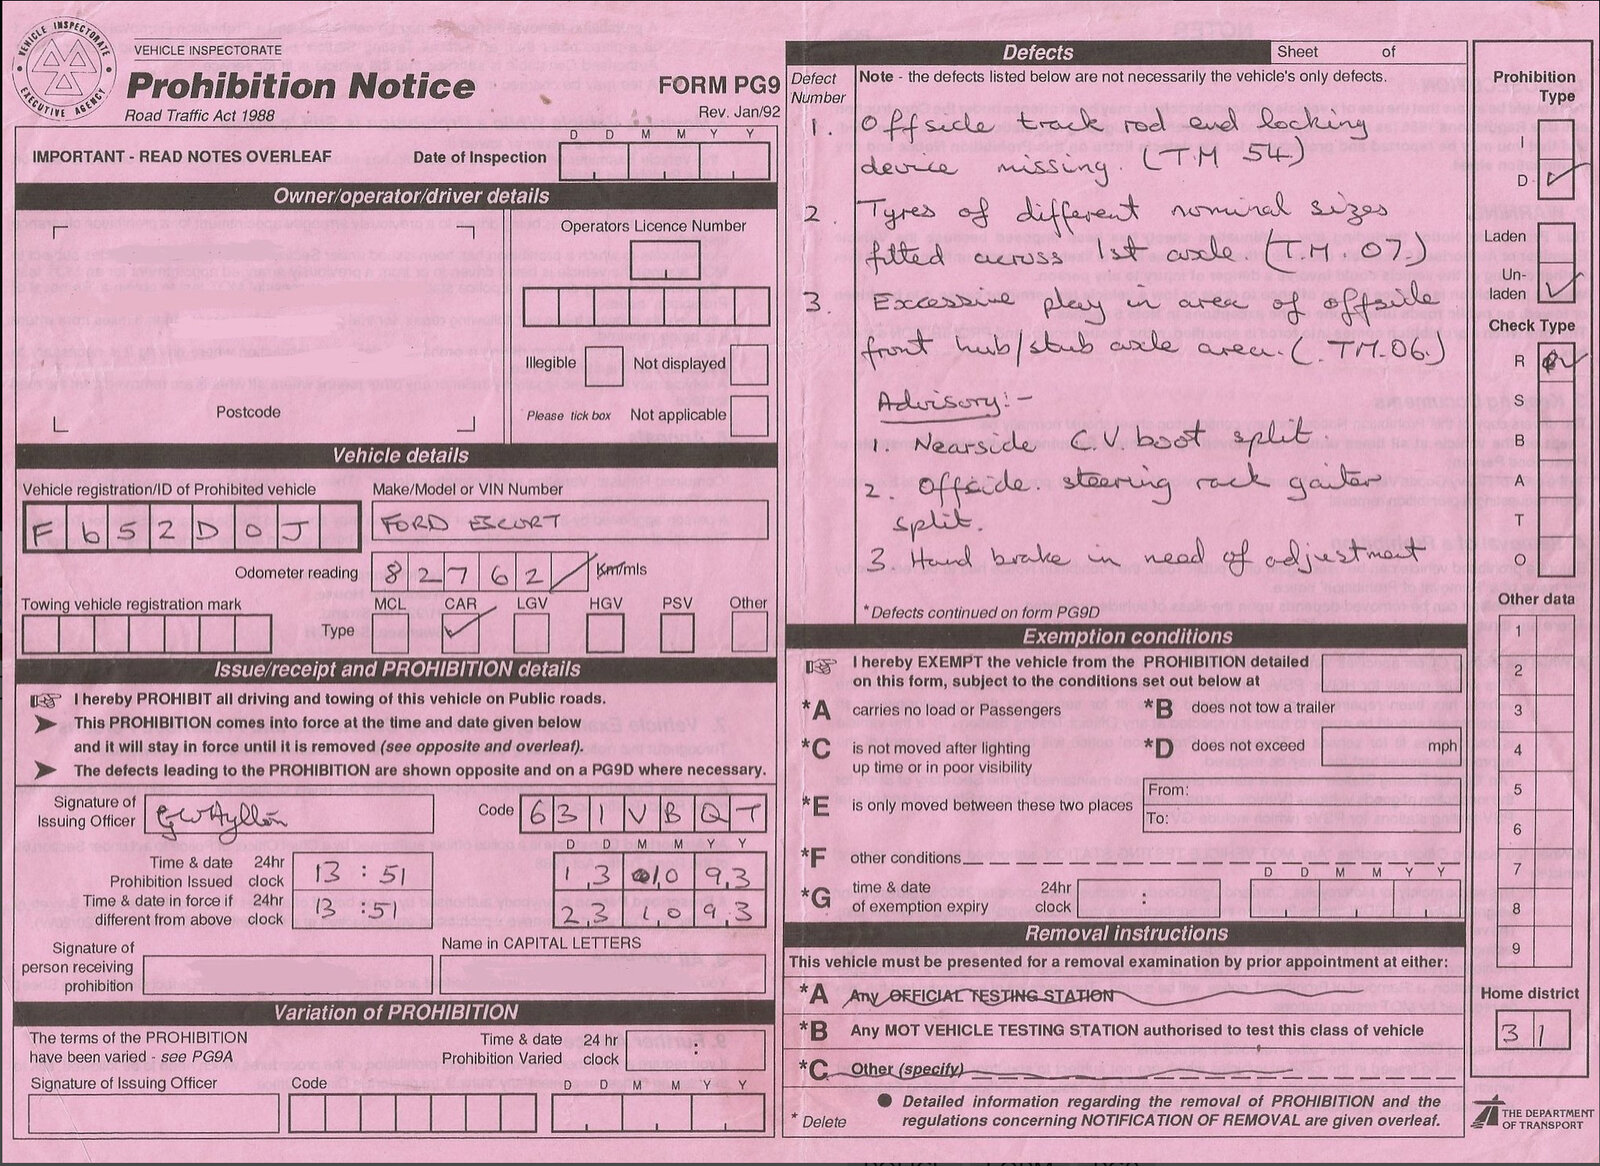 VEHICLE INSPECTORATE
EXECUTIVE AGENCY
VEHICLE INSPECTORATE
Prohibition Notice
FORM PG9
Road Traffic Act 1988
Rev. Jan/92
IMPORTANT - READ NOTES OVERLEAF
Date of Inspection
D D M M Y Y
Owner/operator/driver details
Operators Licence Number
Illegible
Not displayed
Please tick box
Not applicable
Postcode
Vehicle details
Vehicle registration/ID of Prohibited vehicle
Make/Model or VIN Number
F652DOJ
FORD ESCORT
Odometer reading
82762
Km/mls
Towing vehicle registration mark
MCL CAR LGV HGV PSV Other
Type
Issue/receipt and PROHIBITION details
I hereby PROHIBIT all driving and towing of this vehicle on Public roads.
This PROHIBITION comes into force at the time and date given below
and it will stay in force until it is removed (see opposite and overleaf).
The defects leading to the PROHIBITION are shown opposite and on a PG9D where necessary.
Signature of
Issuing Officer
Code
631VBQT
D D M M Y Y
Time & date 24hr
Prohibition Issued clock
13 : 51
13 10 93
Time & date in force if 24hr
different from above clock
13 : 51
23 10 93
Signature of
person receiving
prohibition
Name in CAPITAL LETTERS
Variation of PROHIBITION
The terms of the PROHIBITION
have been varied - see PG9A
Time & date 24 hr
Prohibition Varied clock
:
Signature of Issuing Officer
Code
D D M M Y Y
Defects
Sheet of
Defect
Number
Note - the defects listed below are not necessarily the vehicle's only defects.
1. Offside track rod end locking
device missing. (T.M 54)
2. Tyres of different nominal sizes
fitted across 1st axle (T.M. 07.)
3 Excessive play in area of offside
front hub/stub axle area. (.TM.06.)
Advisory:-
1. Nearside C.V. boot split
2. Offside. steering rack gaiter
split.
3. Hand brake in need of adjustment
*Defects continued on form PG9D
Exemption conditions
I hereby EXEMPT the vehicle from the PROHIBITION detailed
on this form, subject to the conditions set out below at
*A carries no load or Passengers
*B does not tow a trailer
*C is not moved after lighting
up time or in poor visibility
*D does not exceed mph
*E is only moved between these two places
From:
To:
*F other conditions
D D M M Y Y
*G time & date 24hr
of exemption expiry clock
:
Removal instructions
This vehicle must be presented for a removal examination by prior appointment at either:
*A Any OFFICIAL TESTING STATION
*B Any MOT VEHICLE TESTING STATION authorised to test this class of vehicle
*C Other (specify)
* Delete
Detailed information regarding the removal of PROHIBITION and the
regulations concerning NOTIFICATION OF REMOVAL are given overleaf.
Prohibition
Type
I
D
Laden
Un-
laden
Check Type
R
S
B
A
T
O
Other data
1
2
3
4
5
6
7
8
9
Home district
31
THE DEPARTMENT
OF TRANSPORT